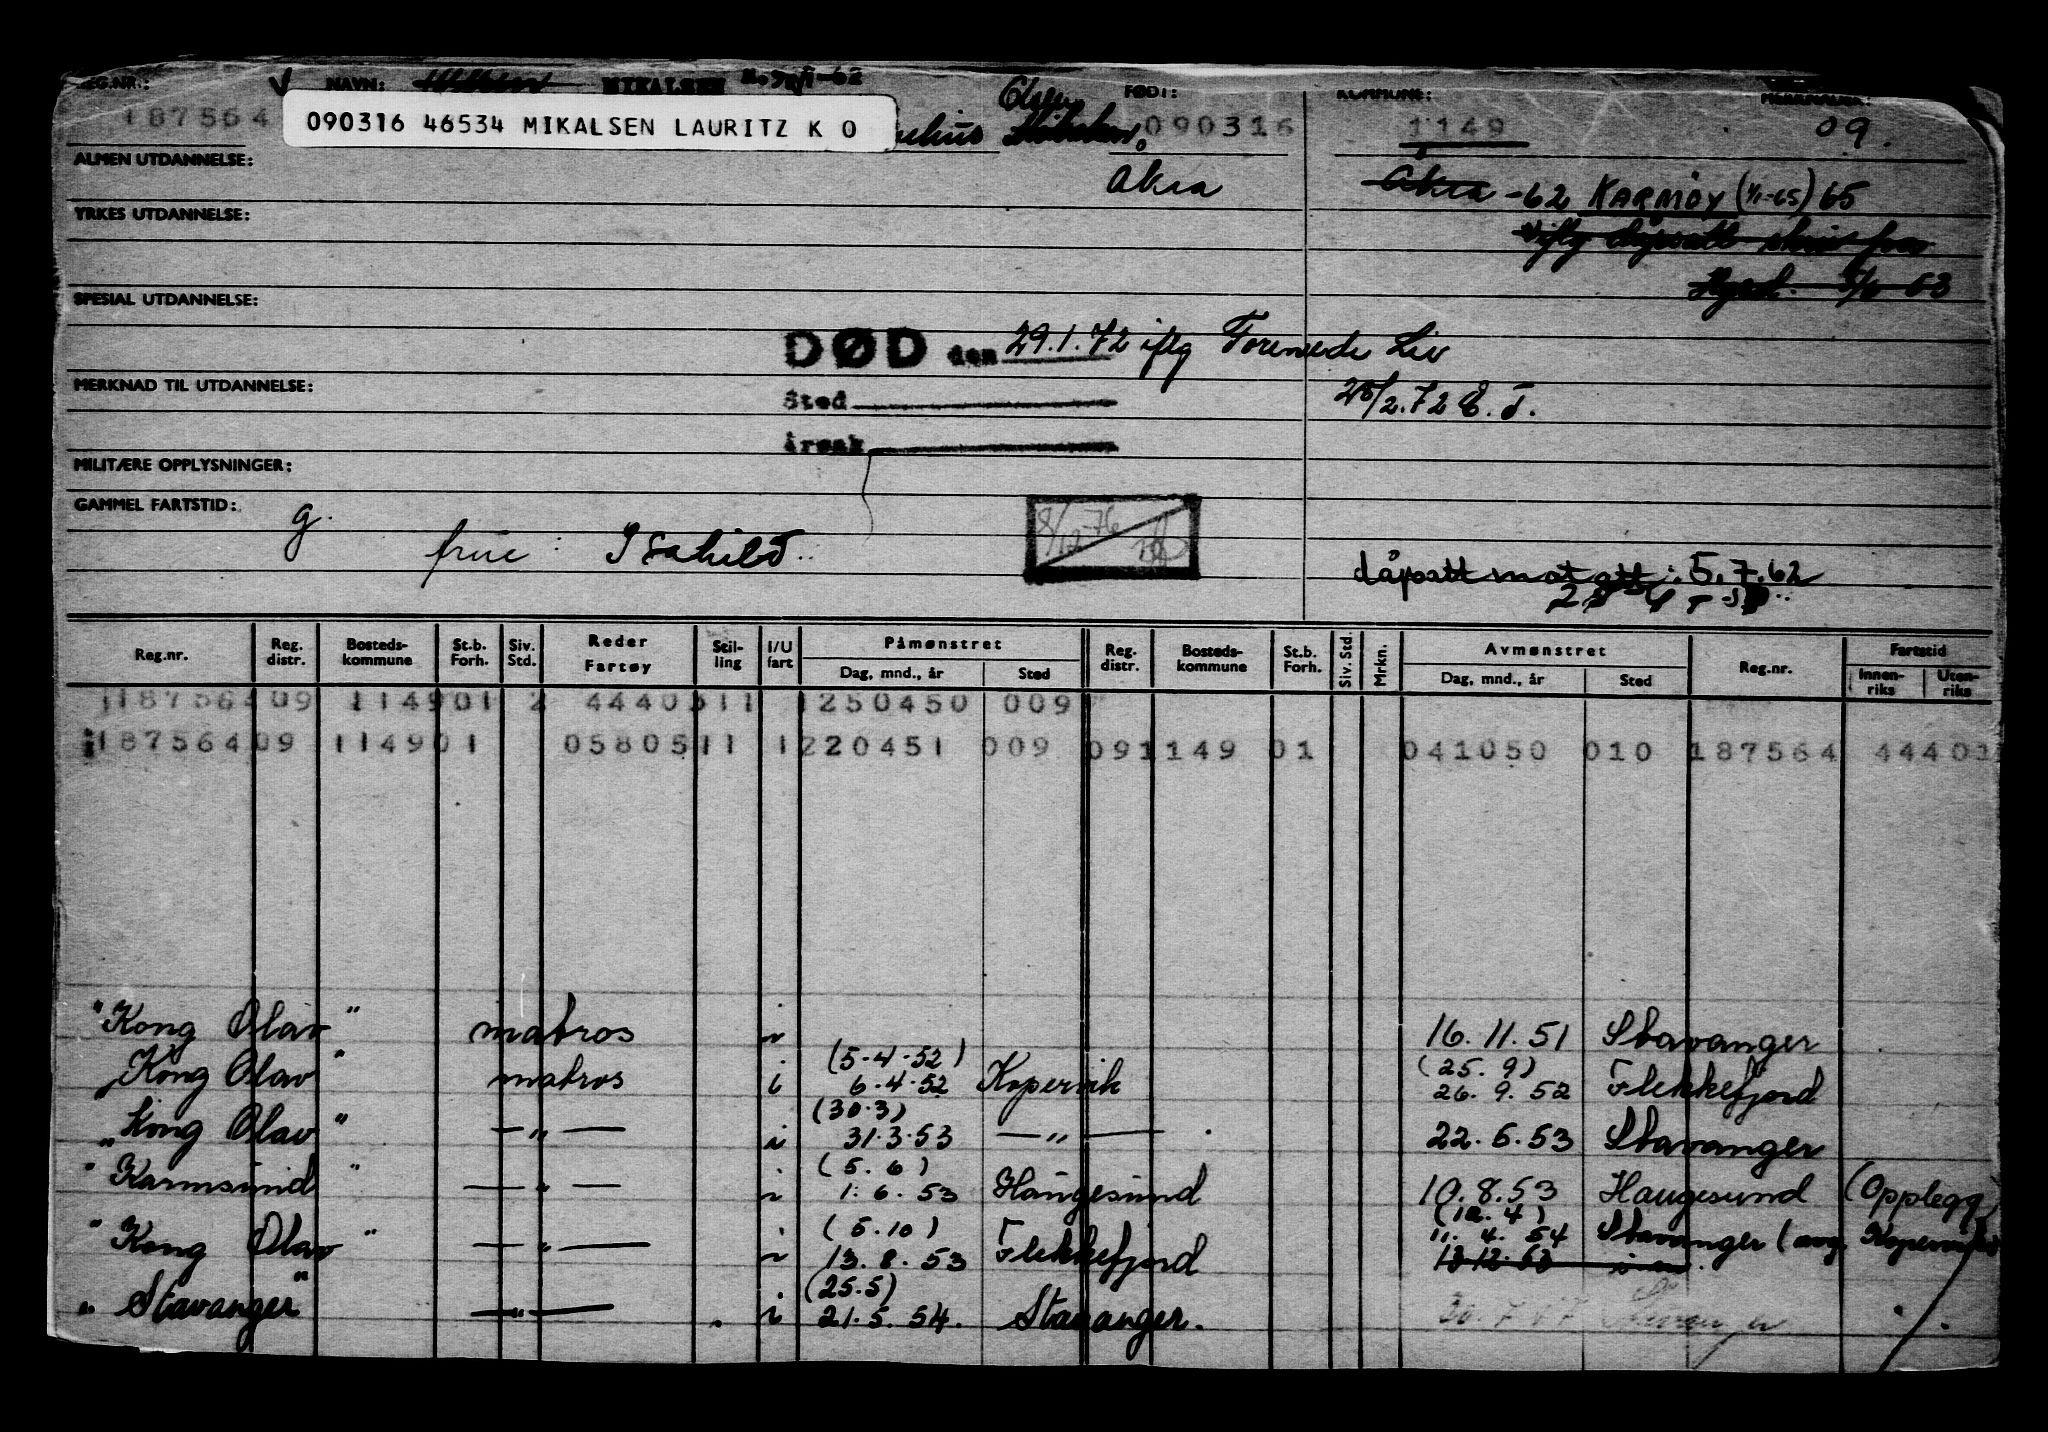 REG.NR.: V NAVN: MIKALSEN FØDT: KOMMUNE:
187564 090316 46534 MIKALSEN LAURITZ K O Olsen 090316 1149 09.
ALMEN UTDANNELSE: Åkra Åkra -62 KARMØY (1/1-65) 65
YRKES UTDANNELSE:
SPESIAL UTDANNELSE:
DØD den 29.1.72 iflg Forenede Liv
MERKNAD TIL UTDANNELSE: Sted 28/2.72 E.T.
årsak
MILITÆRE OPPLYSNINGER:
GAMMEL FARTSTID: g. 8/12-76
frue: Isahild.
dåpsatt mot att: 5.7.62
Reg.nr. Reg. distr. Bosteds-kommune St.b. Forh. Siv. Std. Reder Fartøy Stil-ling I/U fart Påmønstret Dag, mnd., år Sted Reg. distr. Bosteds-kommune St.b. Forh. Siv. Std. Mrkn. Avmønstret Dag, mnd., år Sted Reg.nr. Fartstid Innen-riks Uten-riks
187564 09 1149 01 2 44403 11 1 250450 009
187564 09 1149 01 05805 11 1 220451 009 09 1149 01 041050 010 187564 44403
"Kong Olav" matros i 16.11.51 Stavanger
(5.4.52) (25.9)
"Kong Olav" matros i 6.4.52 Kopervik 26.9.52 Flekkefjord
(30.3)
"Kong Olav" —"— i 31.3.53 —"— 22.5.53 Stavanger
(5.6)
"Karmsund" —"— i 1.6.53 Haugesund 10.8.53 Haugesund (Opplegg)
(5.10) (12.4)
"Kong Olav" —"— i 13.8.53 Flekkefjord 11.4.54 Stavanger (avg. Kopervik)
13.12.53
(25.5)
"Stavanger" —"— i 21.5.54. Stavanger.